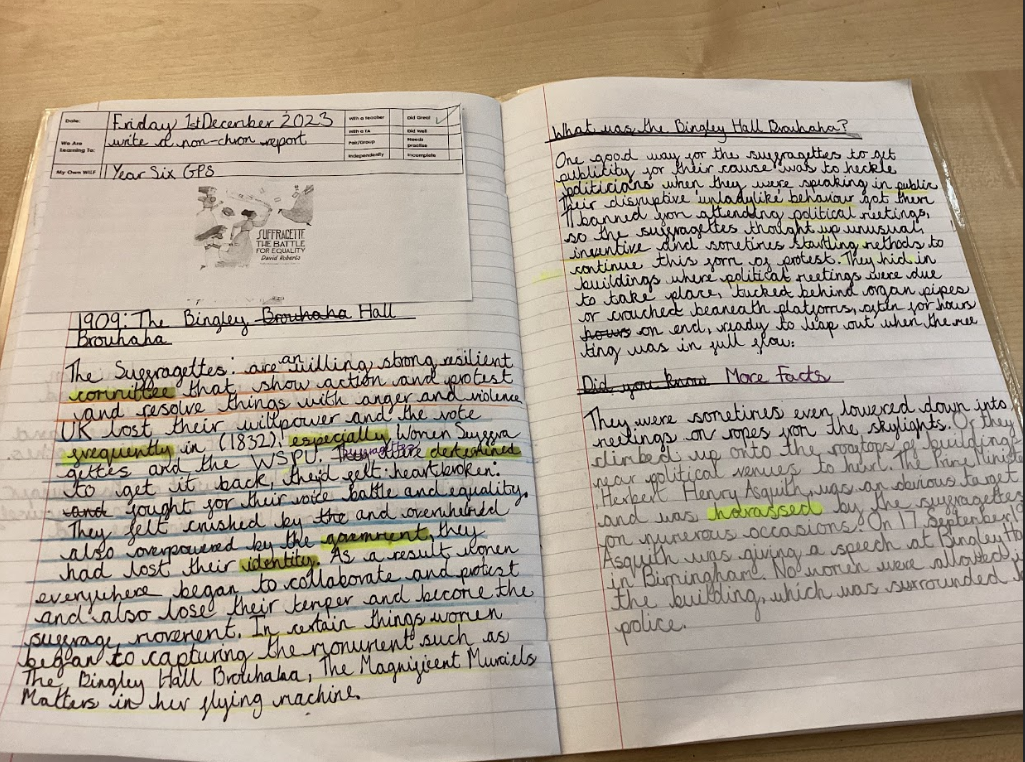 Date:
Friday 1st December 2023
With a teacher
Did Great
We Are Learning To:
write a non-chron report
With a TA
Did Well
Pair/Group
Needs practise
Independently
Incomplete
My Own WILF
Year Six GPS
SUFFRAGETTE
THE BATTLE
FOR EQUALITY
David Roberts
1909: The Bingley Brouhaha Hall
Brouhaha
The Suffragettes: are an willing strong resilient
committee that show action and protest
and resolve things with anger and violence
UK lost their willpower and the vote
frequently in (1832), especially Women Suffra
gettes and the WSPU. determined
to get it back, they'd felt heartbroken.
and fought for their voice battle and equality.
They felt crushed by the and overwhelmed
also overpowered by the they
had lost their identity. As a result women
everywhere began to collaborate and protest
and also lose their temper and become the
suffrage movement. In certain things women
began to capturing the monument such as
The Bingley Hall Brouhaha, The Magnificent
Matters in her flying machine.
What was the Bingley Hall Brouhaha?
One good way for the suffragettes to get
publicity for their cause was to heckle
politicians when they were speaking in public
Their disruptive 'unladylike behaviour got them
banned from attending political meetings,
so the suffragettes thought up unusual,
inventive and sometimes startling methods to
continue this form of protest. They hid in
buildings where political meetings were due
to take place, tucked behind organ pipes
or crouched beneath platforms, often for hours
hours on end, ready to leap out when the mee
ting was in full flow.
Did you know More Facts
They were sometimes even lowered down into
meetings on ropes from the skylights. Or they
climbed up onto the rooftops of buildings
near political venues to hurl. The Prime
Herbert Henry Asquith, was an obvious target
and was harassed by the suffragettes
on numerous occasions. On 17 September
Asquith was giving a speech at Bingley
in Birmingham. No women were allowed
the building, which was surrounded
police.